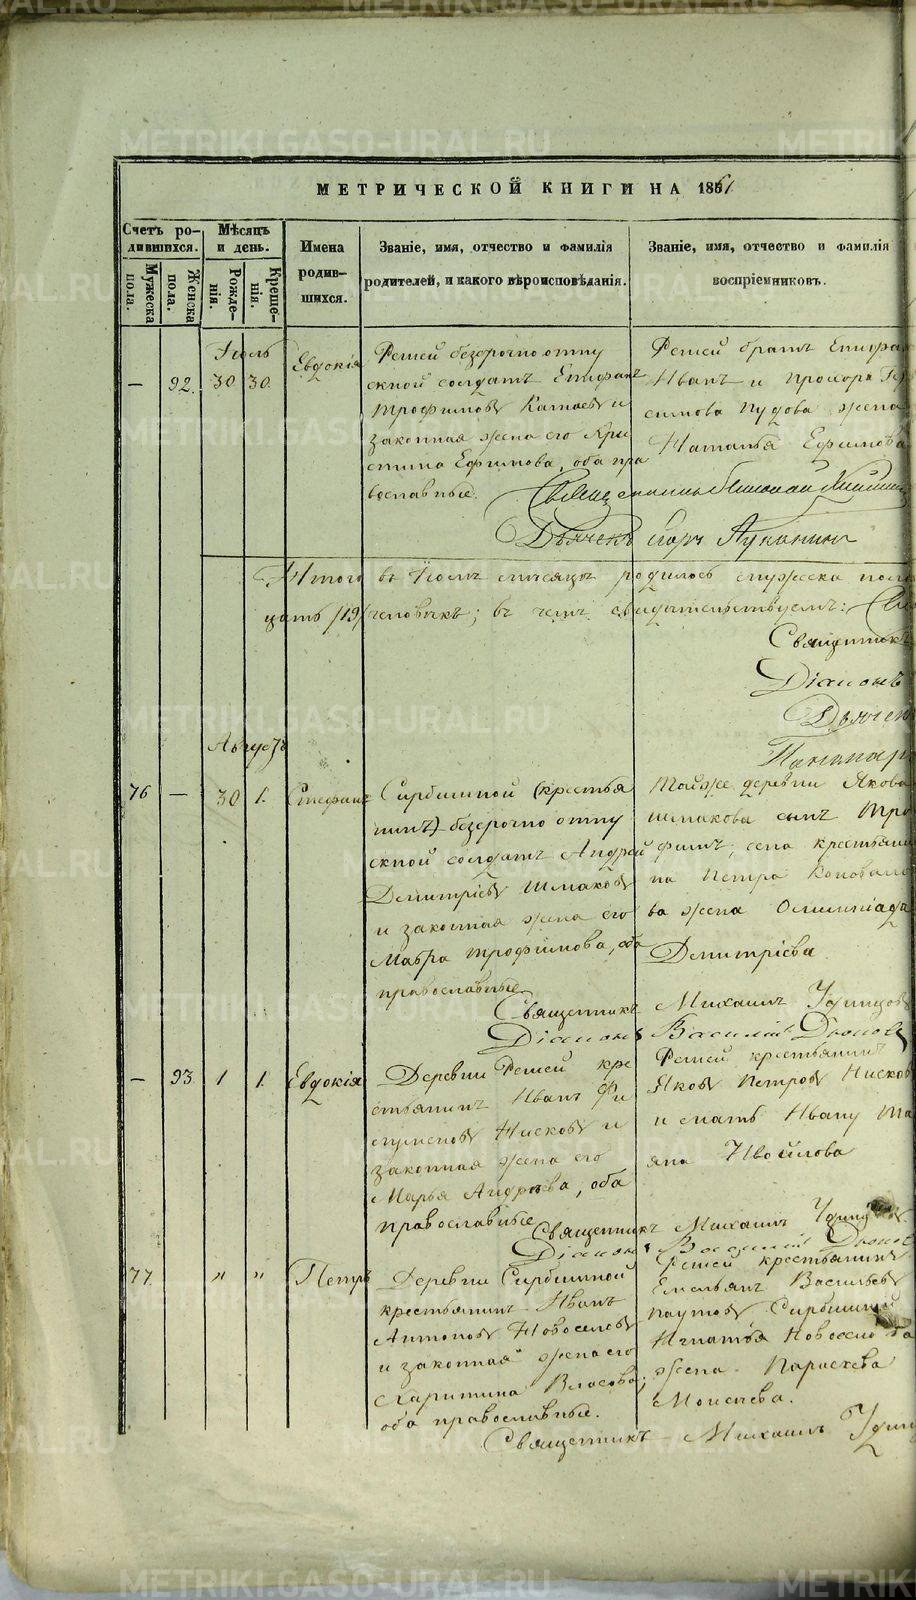 МЕТРИЧЕСКОЙ КНИГИ НА 1861
Счетъ ро-
дившихся.
Мужеска
пола.
Женска
пола.
Мѣсяцъ
и день.
Рожде-
нія.
Креще-
нія.
Имена
родив-
шихся.
Званіе, имя, отчество и фамилія
родителей, и какого вѣроисповѣданія.
Званіе, имя, отчество и фамилія
воспріемниковъ.
Іюль
— 92. 30 30.
Евдокія
Ретей безсрочно отпу
скной солдатъ Епифанъ
Трофимовъ Катаевъ и
законная жена его Хри
стина Ефимова, оба пра
вославные.
Ретей братъ Епифан
Иванъ и Прохора
симова Пудова жена
Наталья Ефимова
Священникъ Николай
Дьячекъ Егоръ Луканинъ
Итого въ Іюлѣ мѣсяцѣ родилось мужеска пола
цать /19/ человѣкъ; въ чемъ свидѣтельствуемъ:
Священникъ
Діаконъ
Дьячекъ
Пономарь
Августъ
76 — 30 1.
Стефанъ
Сирбишной (крестья
нинъ) безсрочно отпу
скной солдатъ Андрей
Димитріевъ Шмаковъ
и законная жена его
Мавра Трофимова, оба
православные
Тойже деревни Якова
Шмакова сынъ Тро
фимъ, села крестьяни
на Петра Коновало
ва жена Олимпіада
Димитріева
Священникъ Михаилъ Удинцовъ
Діаконъ Василій Дюковъ
— 93. 1 1.
Евдокія
Деревни Ретей кре
стьянинъ Иванъ Фи
лимоновъ Нисковъ и
законная жена его
Марья Андреева, оба
православные
Ретей крестьянинъ
Яковъ Петровъ Нисковъ
и мать Ивану Та
яна Ивойлова
Священникъ Михаилъ Удинцовъ
Діаконъ Василій Дюковъ
77. „ „
Петръ
Деревни Сирбишной
крестьянинъ Иванъ
Антоновъ Новоселовъ
и законная жена его
Харитина Власова;
оба православные.
Ретей крестьянинъ
Емельянъ Васильевъ
Паутовъ Сирбишной
Игнатья Новосело ва
жена Параскева
Моисеева.
Священникъ Михаилъ Удин
METRIKI.GASO-URAL.RU